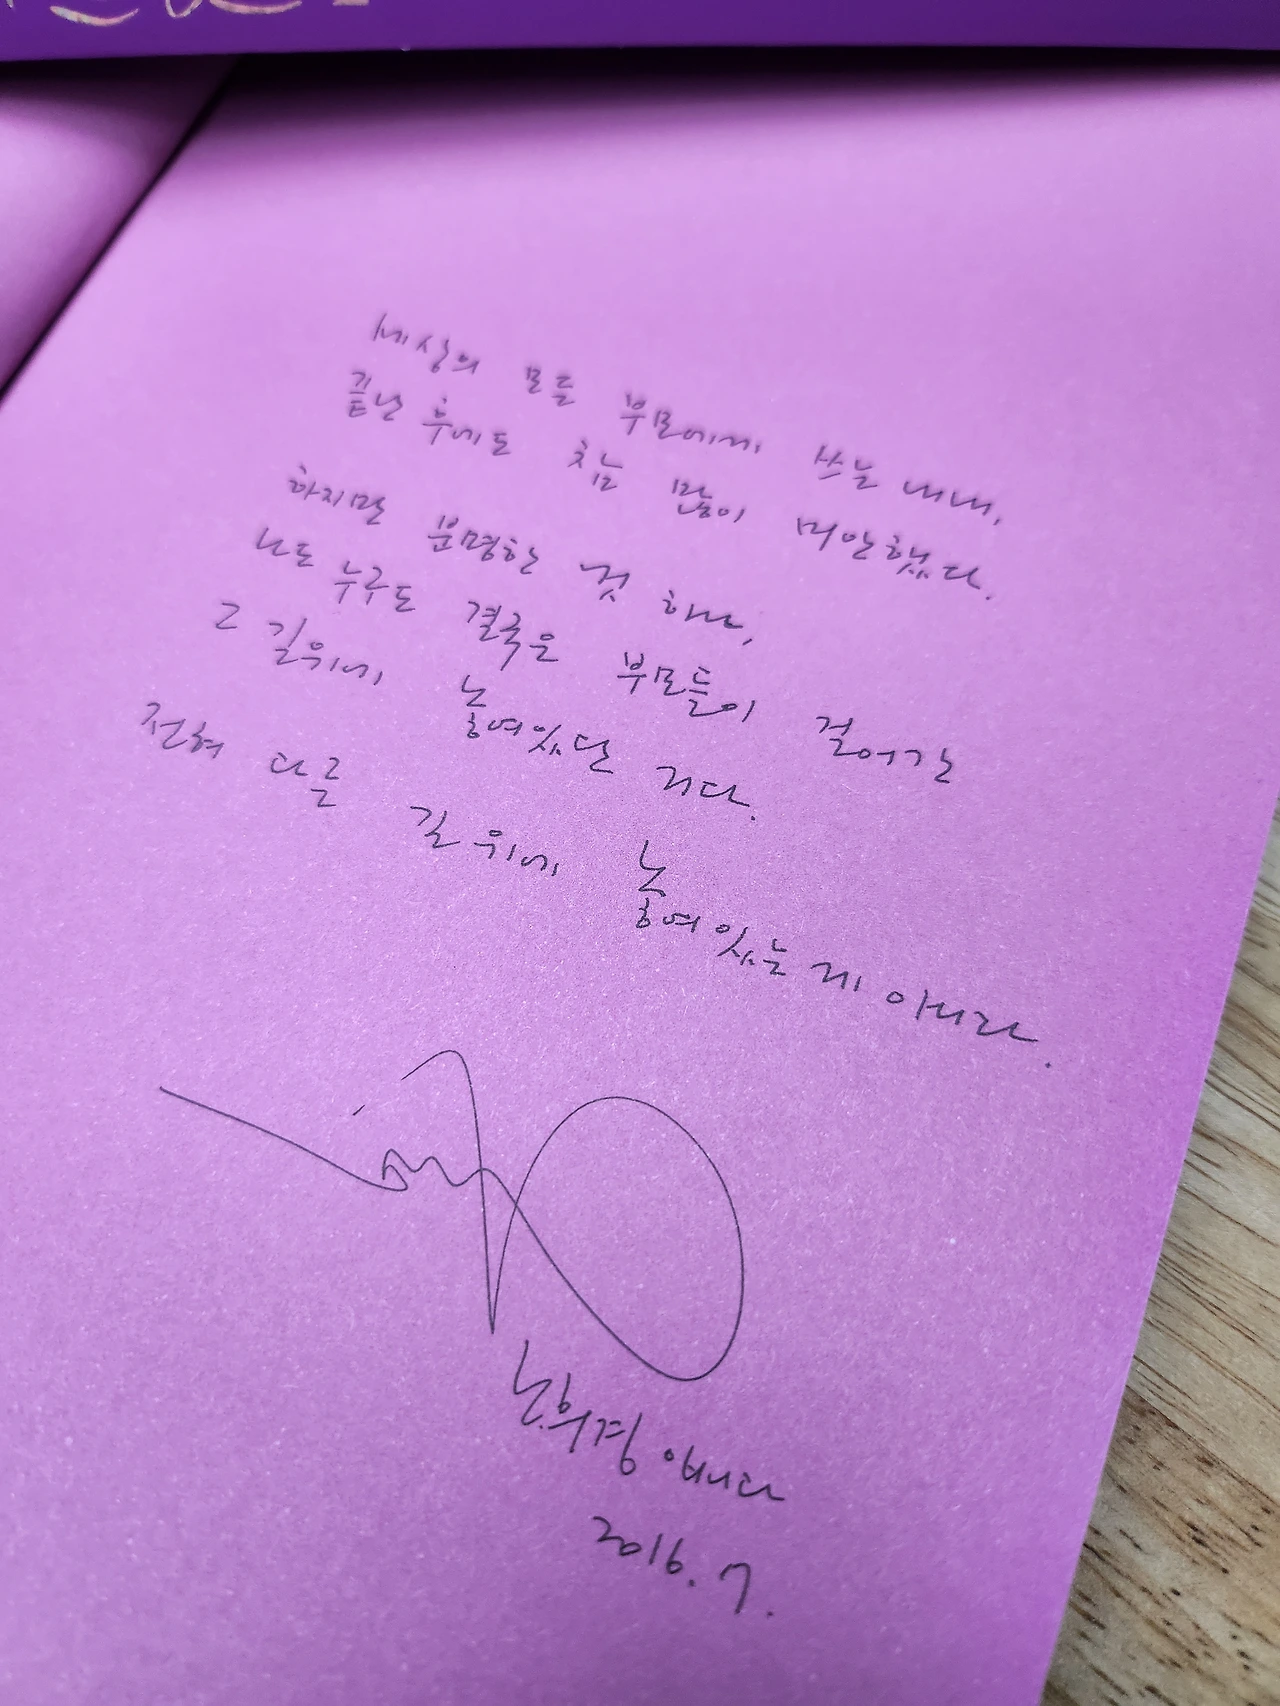 세상의 모든 부모에게 쓰는 내내,
끝난 후에도 참 많이 미안했다.
하지만 분명한 것 하나,
너도 누구도 결국은 부모들이 걸어간
그 길위에 놓여있단 거다.
전혀 다른 길 위에 놓여있는 게 아니라.
노희경 입니다
2016. 7.